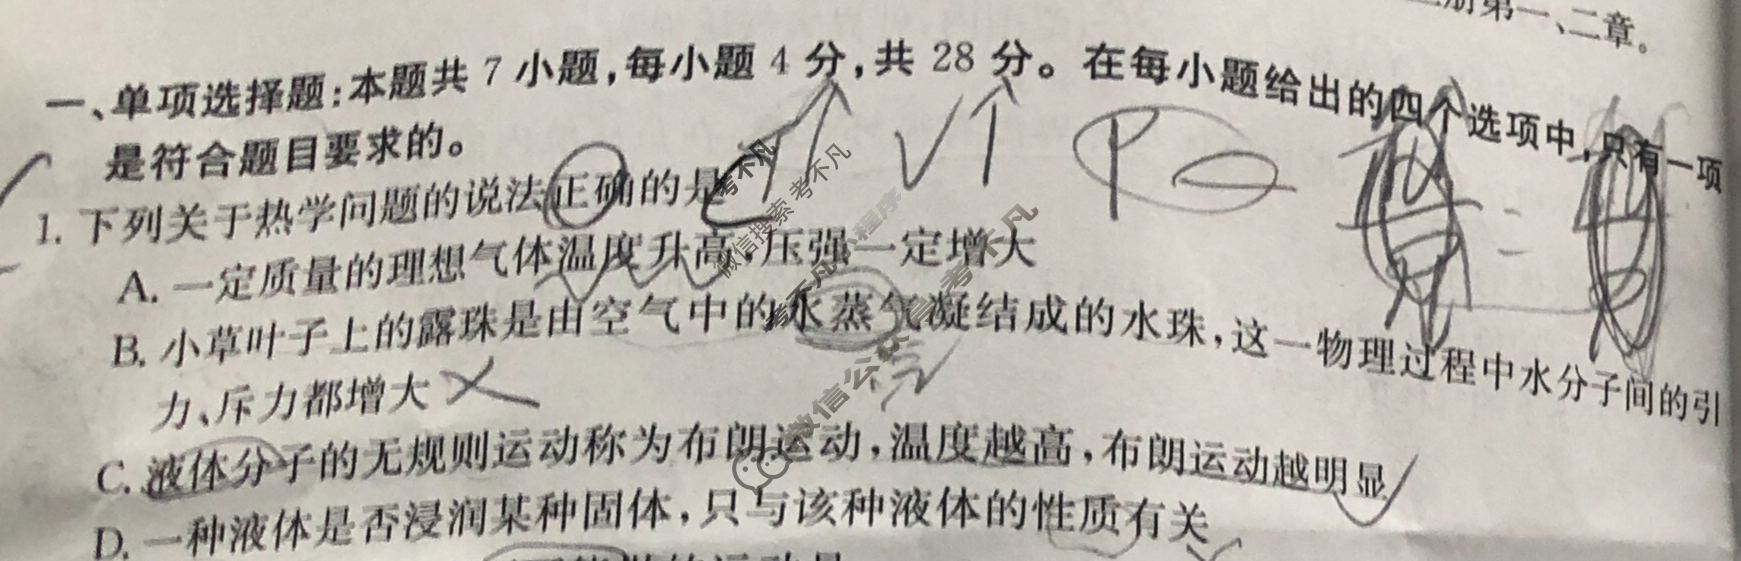 册第一、二章。
一、单项选择题:本题共 7 小题,每小题 4 分,共 28 分。在每小题给出的四个选项中,只有一项
是符合题目要求的。
1. 下列关于热学问题的说法正确的是
A. 一定质量的理想气体温度升高,压强一定增大
B. 小草叶子上的露珠是由空气中的水蒸气凝结成的水珠,这一物理过程中水分子间的引
力、斥力都增大
C. 液体分子的无规则运动称为布朗运动,温度越高,布朗运动越明显
D. 一种液体是否浸润某种固体,只与该种液体的性质有关
微信搜索 考不凡
微信公众